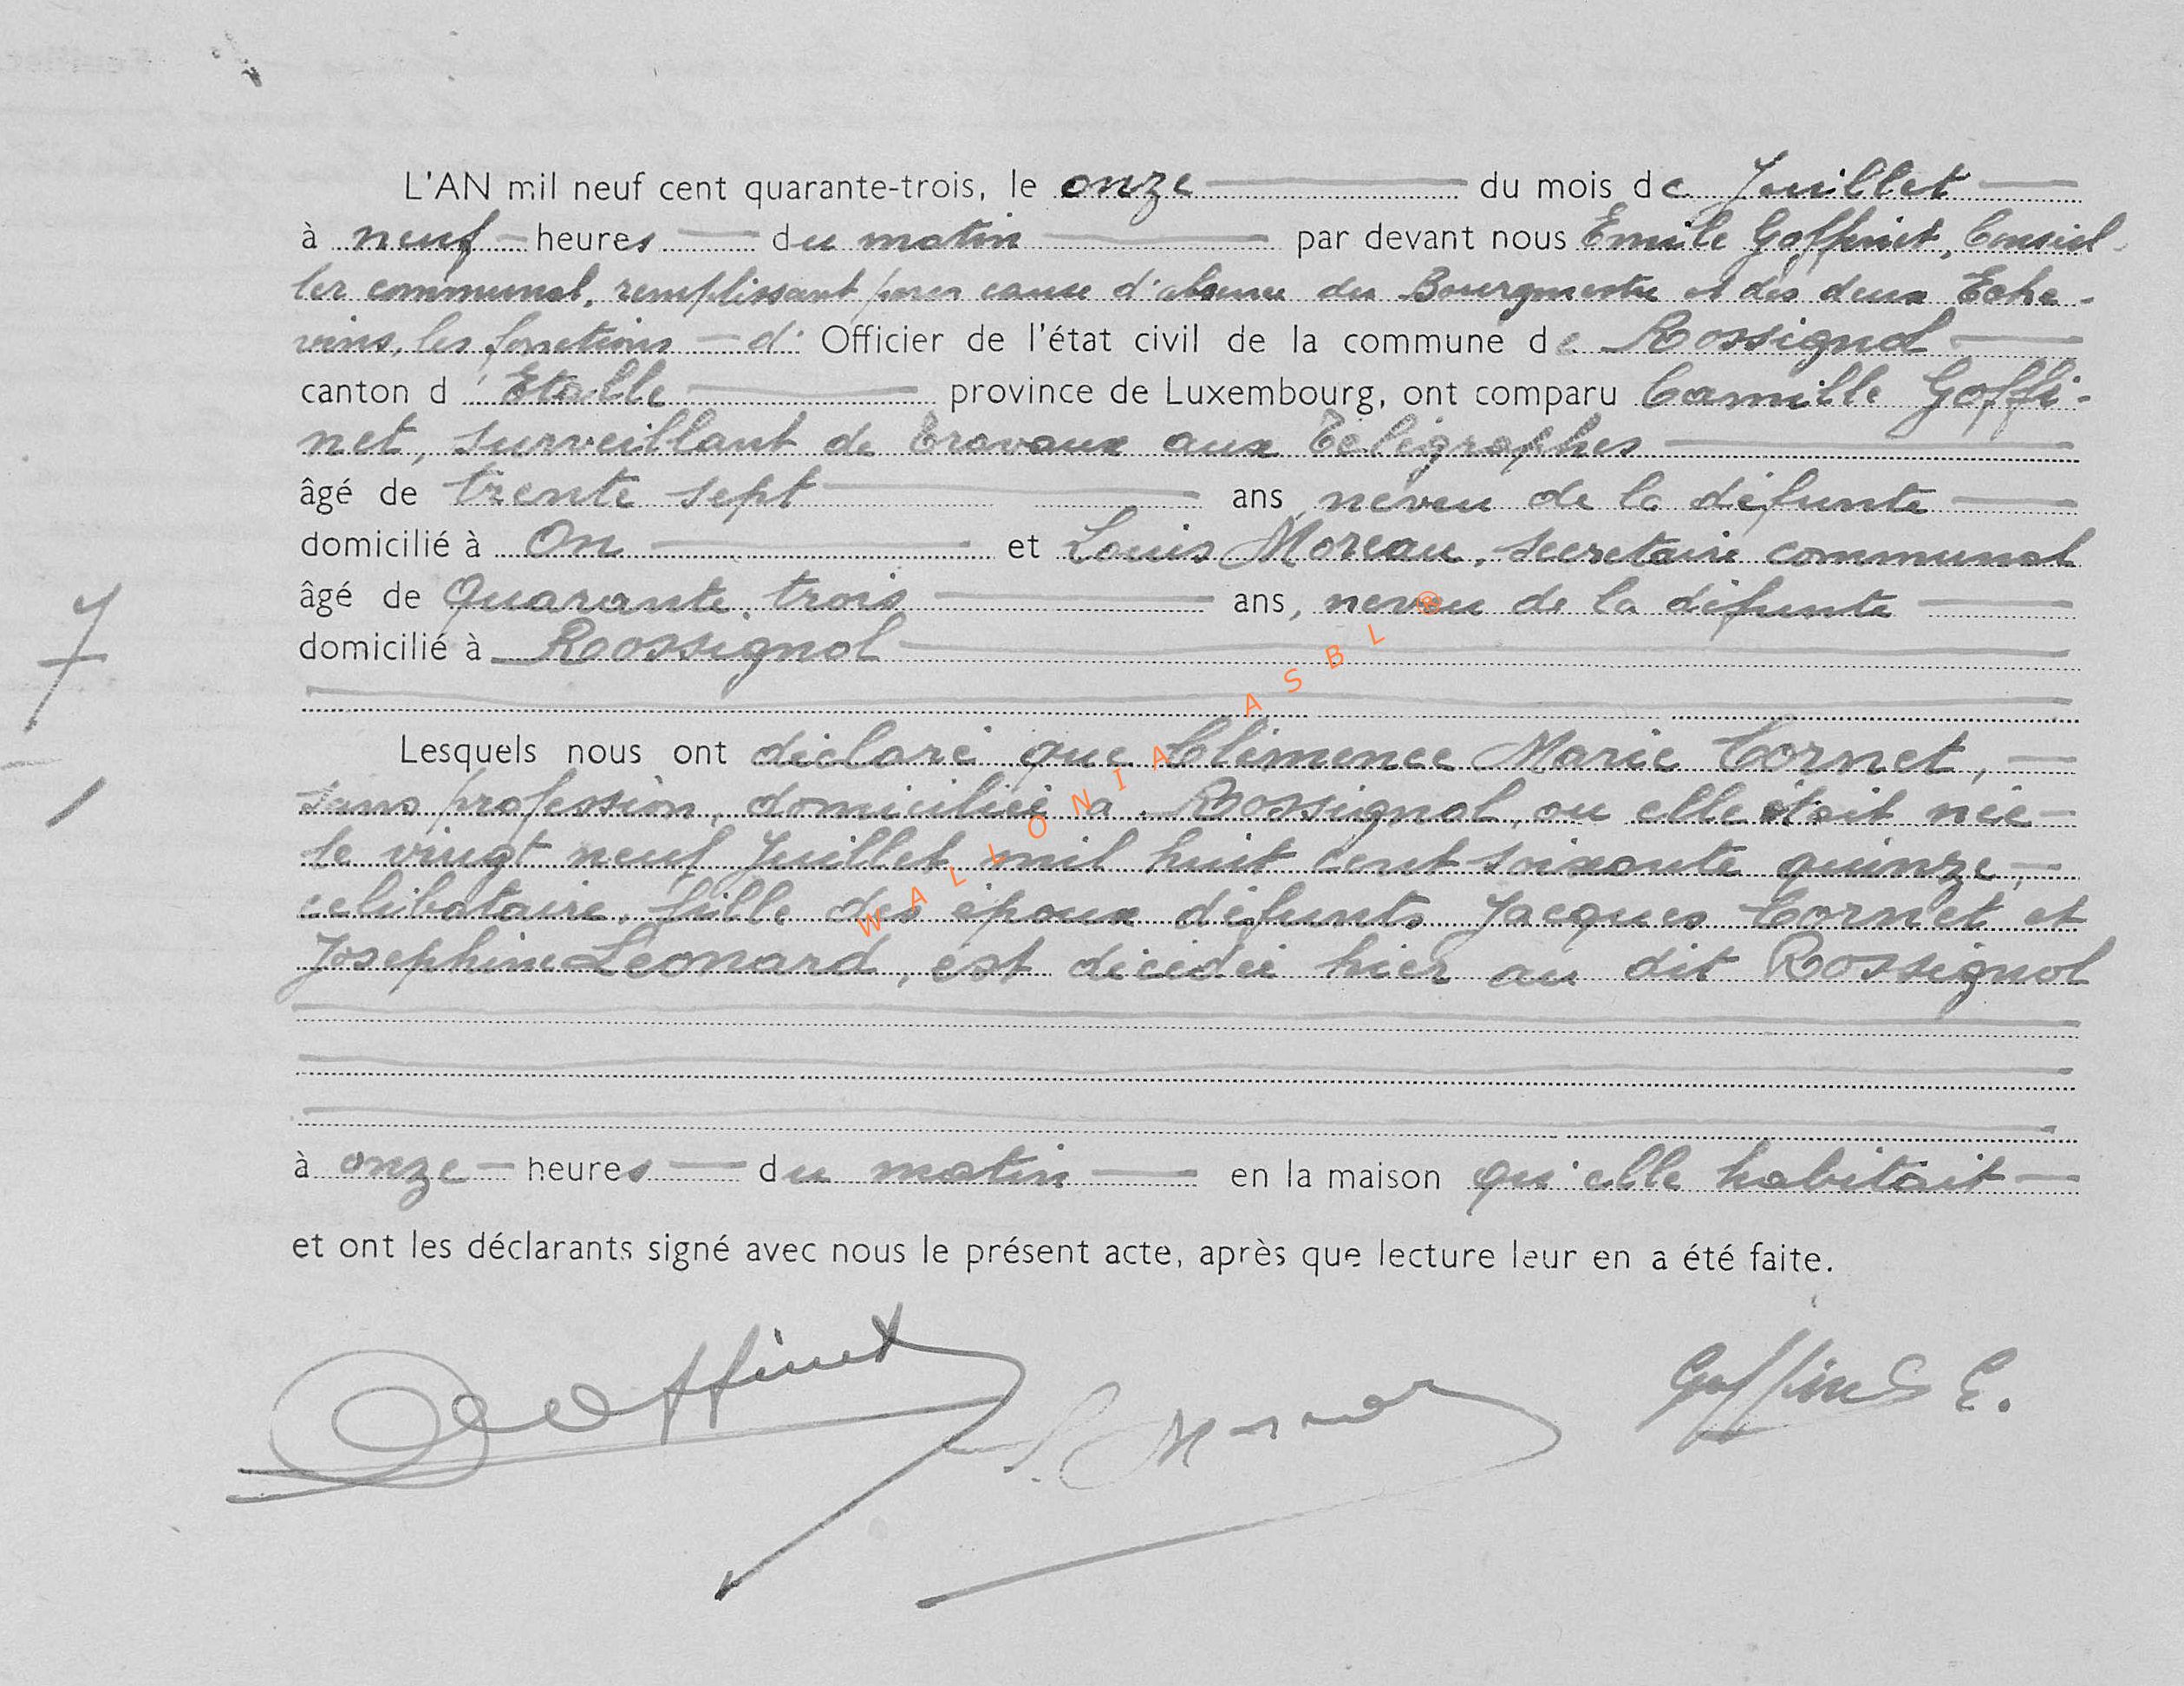 L'AN mil neuf cent quarante-trois, le onze du mois de Juillet
à neuf heures du matin par devant nous Emile Goffinet, Conseil-
ler communal, remplissant pour cause d'absence du Bourgmestre et des deux Eche-
vins, les fonctions d' Officier de l'état civil de la commune de Rossignol
canton d'Etalle province de Luxembourg, ont comparu Camille Goffi-
net, surveillant de travaux aux Télégraphes
âgé de trente sept ans, neveu de la défunte
domicilié à On et Louis Moreau, secretaire communal
âgé de Quarante trois ans, neveu de la défunte
domicilié à Rossignol
7
Lesquels nous ont déclaré que Clémence Marie Cornet,
1
sans profession, domiciliée à Rossignol, ou elle était née
le vingt neuf Juillet mil huit cent soixante quinze,
celibataire, fille des époux défunts Jacques Cornet et
Josephine Léonard, est décédée hier au dit Rossignol
à onze heures du matin en la maison qu'elle habitait
et ont les déclarants signé avec nous le présent acte, après que lecture leur en a été faite.
Goffinet L. Moreau Goffinet E.
WALLONIA ASBL ®